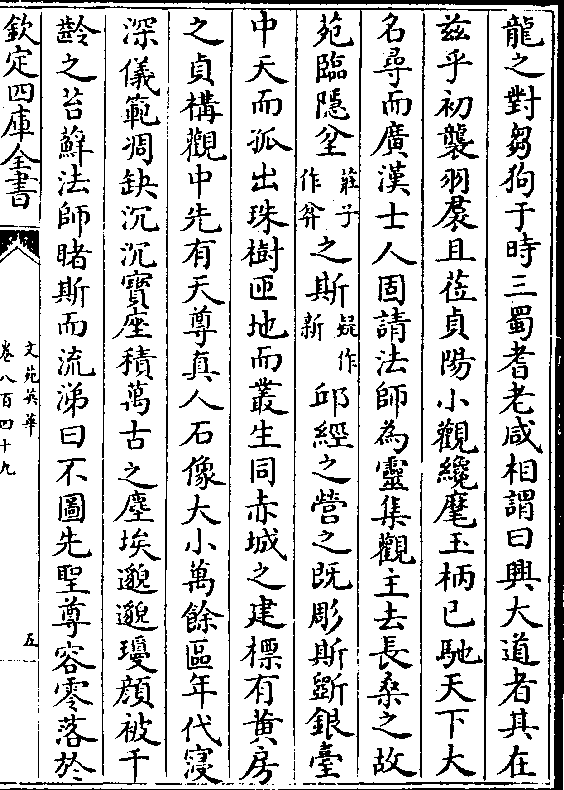 龍之對芻狗于時三蜀耆老咸相謂曰興大道者其在
兹乎初襲羽裠且蒞貞陽小觀纔麾玉柄已馳天下大
名尋而廣漢士人固請法師為靈集觀主去長桑之故
苑臨隱坌莊子作弅之斯疑作新邱經之營之既彫斯斲銀臺
中天而孤出珠樹匝地而叢生同赤城之建標有黄房
之貞構觀中先有天尊真人石像大小萬餘區年代寖
深儀範凋缺沉沉寳座積萬古之塵埃邈邈瓊顔被千
齡之苔蘚法師睹斯而流涕曰不圖先聖尊容零落於
欽定四庫全書
文苑英華
卷八百四十九
五